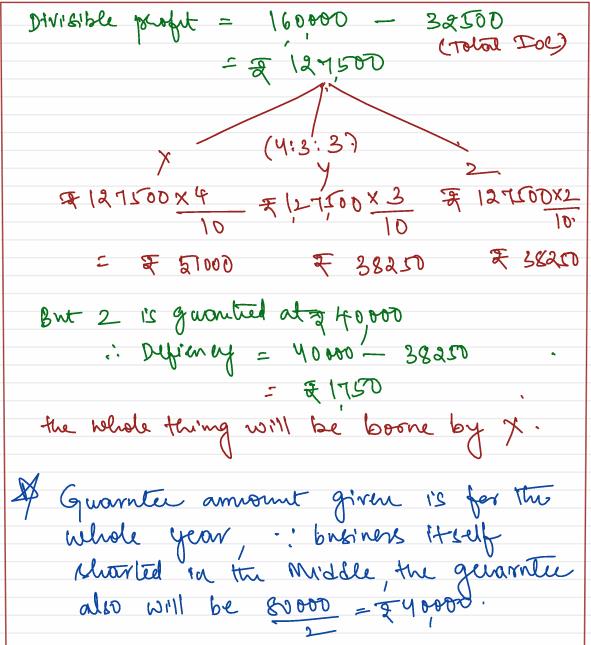 Divisible profit = 160,000 - 32500
(Total IOC)
= ₹ 127,500
(4:3:3)
X Y Z
₹ 127500 x 4/10 ₹ 127,500 x 3/10 ₹ 127500 x 2/10
= ₹ 51000 ₹ 38250 ₹ 38250
But Z is guantied at ₹ 40,000
∴ Defieney = 40000 - 38250
= ₹ 1,750
the whole thing will be boone by X.
☆ Guarntee amount given is for the
whole year, ∵ business itself
started in the Middle, the guarntee
also will be 80000/2 = ₹ 40,000.